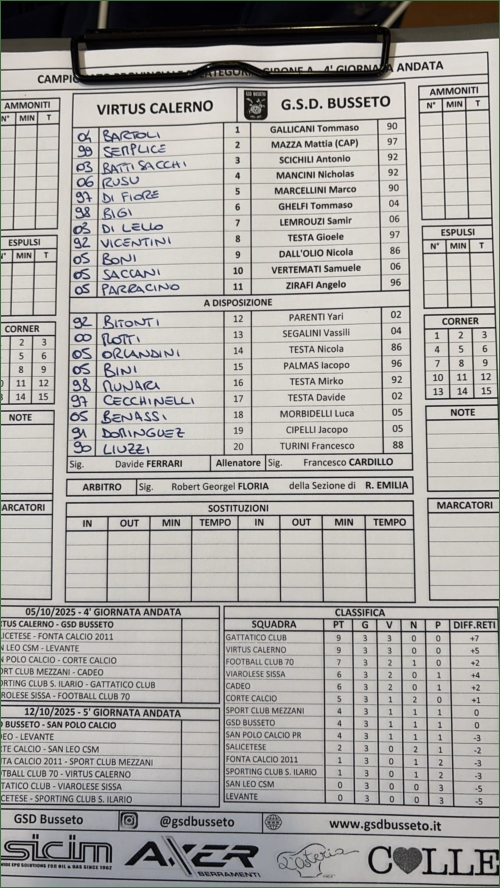 GIORNATA ANDATA
AMMONITI
N° MIN T
ESPULSI
N° MIN T
CORNER
2 3
5 6
8 9
11 12
14 15
NOTE
MARCATORI
VIRTUS CALERNO G.S.D. BUSSETO
04 BARTOLI 1 GALLICANI Tommaso 90
99 SEMPLICE 2 MAZZA Mattia (CAP) 97
03 BATTISACCHI 3 SCICHILI Antonio 92
06 RUSU 4 MANCINI Nicholas 92
97 DI FIORE 5 MARCELLINI Marco 90
98 BIGI 6 GHELFI Tommaso 04
03 DI LELLO 7 LEMROUZI Samir 06
92 VICENTINI 8 TESTA Gioele 97
05 BONI 9 DALL'OLIO Nicola 86
05 SACCANI 10 VERTEMATI Samuele 06
05 PARRACINO 11 ZIRAFI Angelo 96
A DISPOSIZIONE
92 BITONTI 12 PARENTI Yari 02
00 ROTTI 13 SEGALINI Vassili 04
05 ORLANDINI 14 TESTA Nicola 86
05 BINI 15 PALMAS Iacopo 96
98 MUNARI 16 TESTA Mirko 92
97 CECCHINELLI 17 TESTA Davide 02
05 BENASSI 18 MORBIDELLI Luca 05
91 DOMINGUEZ 19 CIPELLI Jacopo 05
90 LIUZZI 20 TURINI Francesco 88
Sig. Davide FERRARI Allenatore Sig. Francesco CARDILLO
ARBITRO Sig. Robert Georgel FLORIA della Sezione di R. EMILIA
SOSTITUZIONI
IN OUT MIN TEMPO IN OUT MIN TEMPO
AMMONITI
N° MIN T
ESPULSI
N° MIN T
CORNER
1 2 3
4 5 6
7 8 9
10 11 12
13 14 15
NOTE
MARCATORI
05/10/2025 - 4' GIORNATA ANDATA
RTUS CALERNO - GSD BUSSETO
LICETESE - FONTA CALCIO 2011
N LEO CSM - LEVANTE
N POLO CALCIO - CORTE CALCIO
ORT CLUB MEZZANI - CADEO
ORTING CLUB S. ILARIO - GATTATICO CLUB
AROLESE SISSA - FOOTBALL CLUB 70
12/10/2025 - 5' GIORNATA ANDATA
BUSSETO - SAN POLO CALCIO
DEO - LEVANTE
RTE CALCIO - SAN LEO CSM
NTA CALCIO 2011 - SPORT CLUB MEZZANI
OTBALL CLUB 70 - VIRTUS CALERNO
TTATICO CLUB - VIAROLESE SISSA
ICETESE - SPORTING CLUB S. ILARIO
CLASSIFICA
SQUADRA PT G V N P DIFF.RETI
GATTATICO CLUB 9 3 3 0 0 +7
VIRTUS CALERNO 9 3 3 0 0 +5
FOOTBALL CLUB 70 7 3 2 1 0 +2
VIAROLESE SISSA 6 3 2 0 1 +4
CADEO 6 3 2 0 1 +2
CORTE CALCIO 5 3 1 2 0 +1
SPORT CLUB MEZZANI 4 3 1 1 1 0
GSD BUSSETO 4 3 1 1 1 0
SAN POLO CALCIO PR 4 3 1 1 1 -3
SALICETESE 2 3 0 2 1 -2
FONTA CALCIO 2011 1 3 0 1 2 -3
SPORTING CLUB S. ILARIO 1 3 0 1 2 -3
SAN LEO CSM 0 3 0 0 3 -5
LEVANTE 0 3 0 0 3 -5
GSD Busseto @gsdbusseto www.gsdbusseto.it
sicim
AXER
SERRAMENTI
L'osteria
COLLE